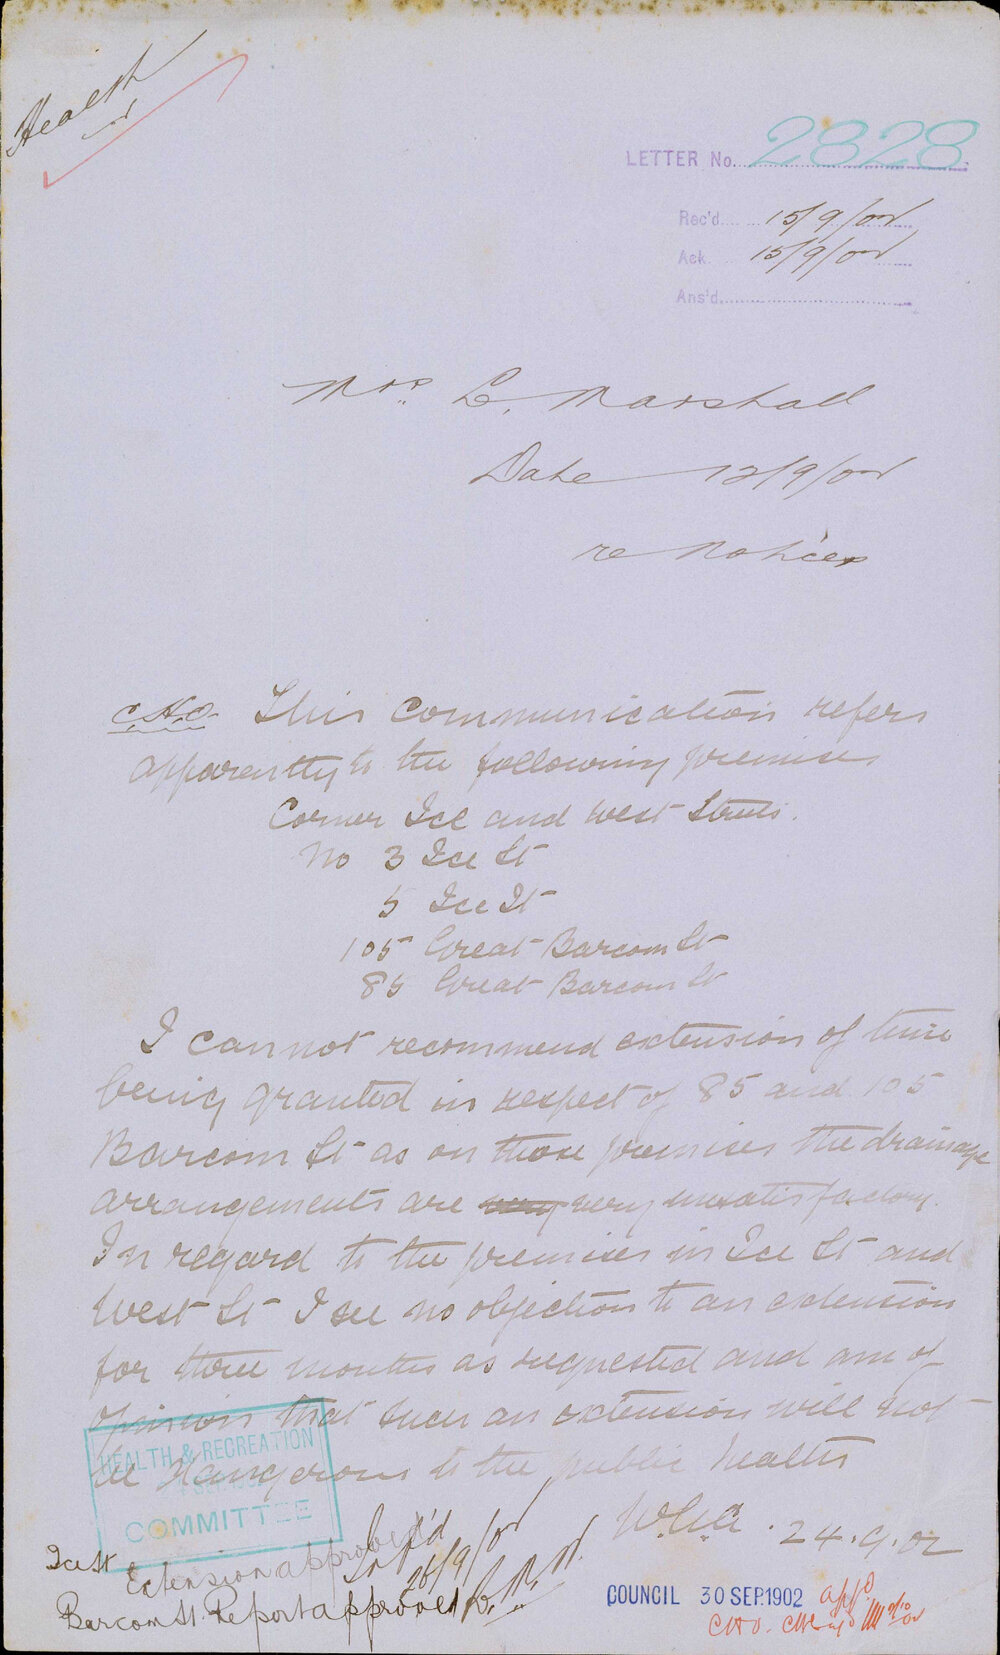 Health
LETTER No. 2828
Rec'd 15/9/02
Ack 15/9/02
Ans'd
Mrs. L. Marshall
Date 12/9/02
re Notices
C.H.O. This communication refers
apparently to the following premises
Corner Ice and West Streets.
No 3 Ice St
5 Ice St
105 Great Barcom St
85 Great Barcom St
I cannot recommend extension of time
being granted in respect of 85 and 105
Barcom St as on those premises the drainage
arrangements are very very unsatisfactory.
In regard to the premises in Ice St and
West St I see no objection to an extension
for three months as requested and am of
opinion that such an extension will not
be dangerous to the public health
HEALTH & RECREATION
COMMITTEE
24.9.02
Ice St Extension approved
26/9/02
Barcom St. Report approved
COUNCIL 30 SEP. 1902 appd
CHO.